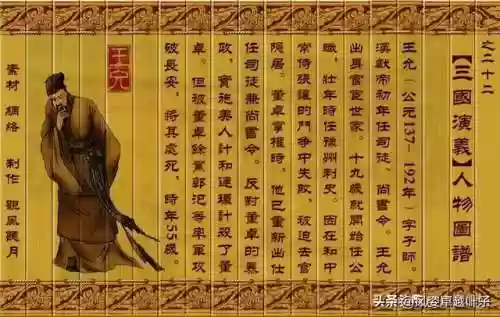 之二十二
【三國演義】人物圖譜
王允(公元137-192年)字子師。
漢獻帝初年任司徒、尚書令。王允
出身官宦世家。十九歲就開始任公
職,壯年時任豫州刺史。因在和中
常侍張讓的鬥爭中失敗,被迫去官
隱居。董卓掌權時,他已重新出仕
任司徒兼尚書令。反對董卓的暴
政,實施美人計和連環計殺了董
卓。但被董卓餘黨郭汜等率軍攻
破長安,將其處死,時年55歲。
王允
素材 網絡 制作 觀風聽月
头条